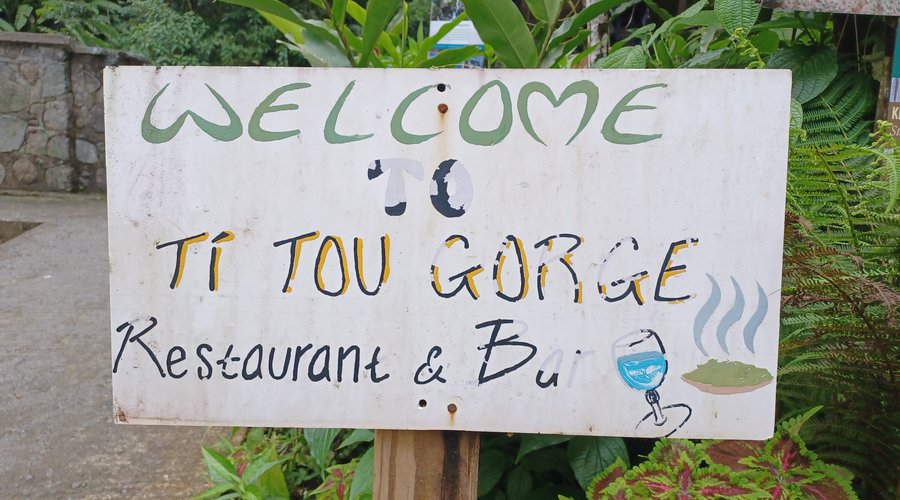 WELCOME
TO
TI TOU GORGE
Restaurant & Bar